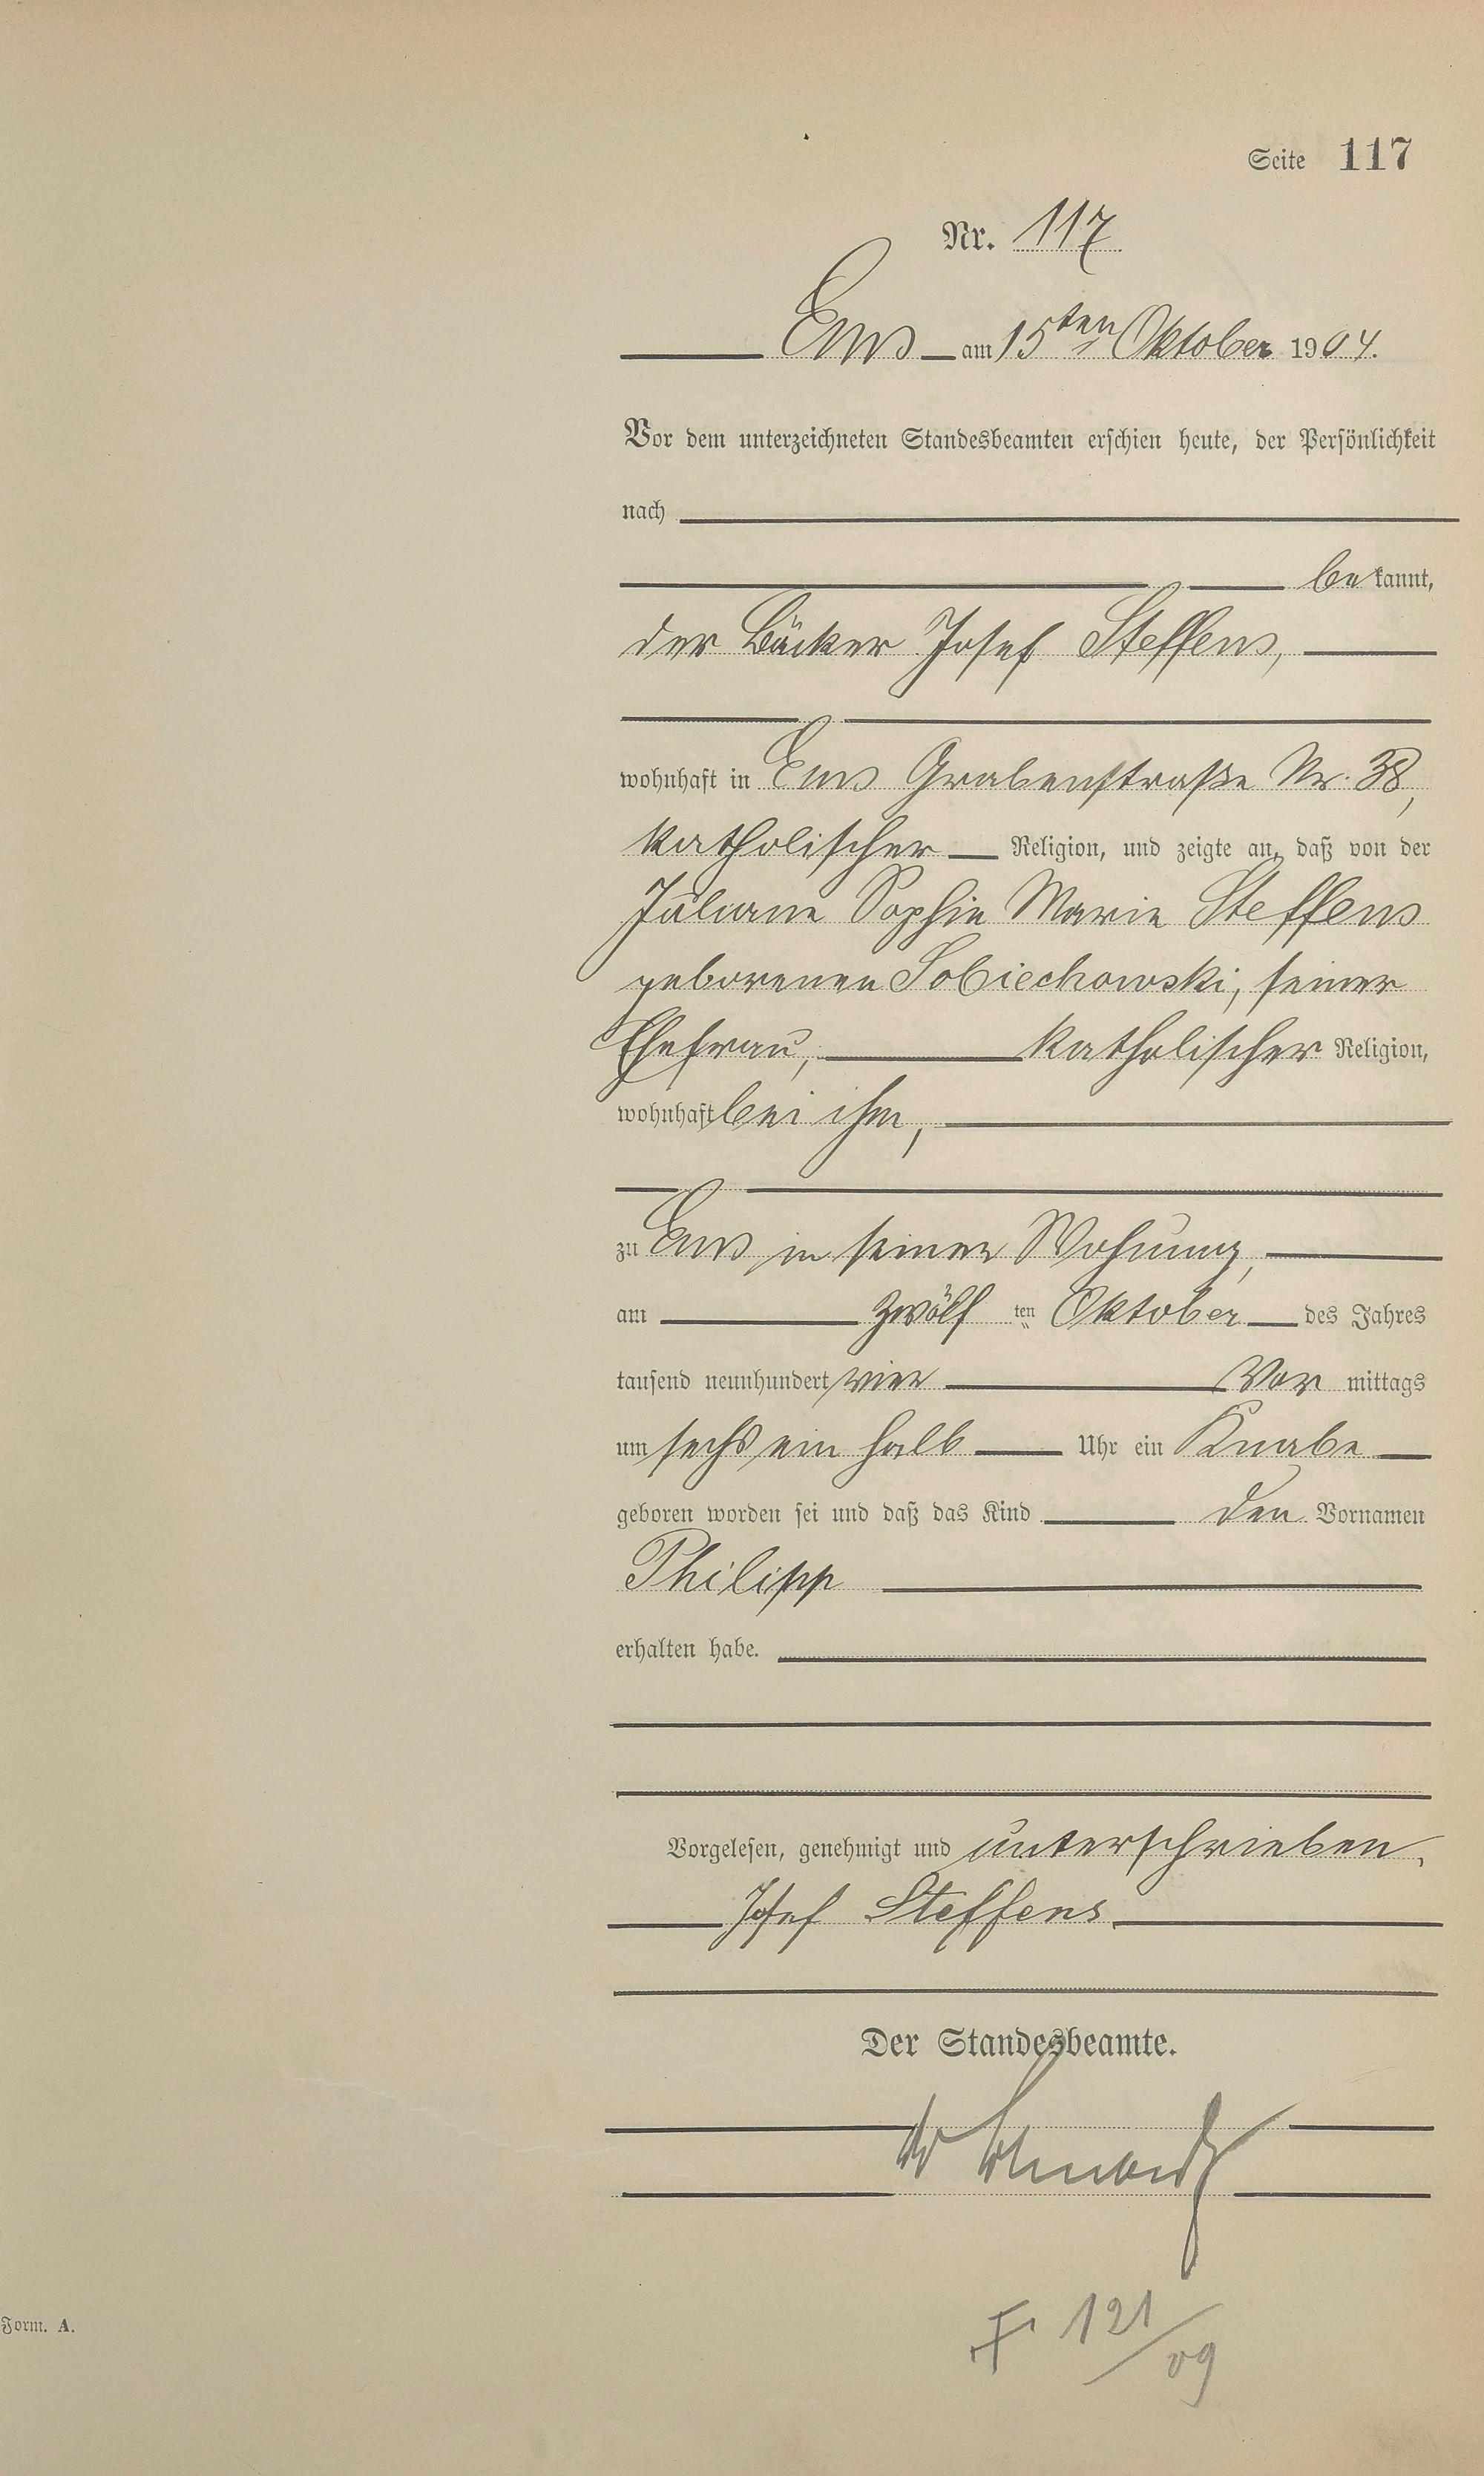 Seite 117
Nr. 117
Ems am 15ten Oktober 1904.
Vor dem unterzeichneten Standesbeamten erschien heute, der Persönlichkeit
nach
bekannt,
der Bäcker Josef Steffens,
wohnhaft in Ems Grabenstraße Nr. 38,
katholischer Religion, und zeigte an, daß von der
Juliane Sophie Marie Steffens
geborenen Sobiechowski, seiner
Ehefrau, katholischer Religion,
wohnhaft bei ihm,
zu Ems in seiner Wohnung,
am zwölf ten Oktober des Jahres
tausend neunhundert vier Vor mittags
um sechs ein halb Uhr ein Knabe
geboren worden sei und daß das Kind den Vornamen
Philipp
erhalten habe.
Vorgelesen, genehmigt und unterschrieben.
Josef Steffens
Der Standesbeamte.
121/09
Form. A.